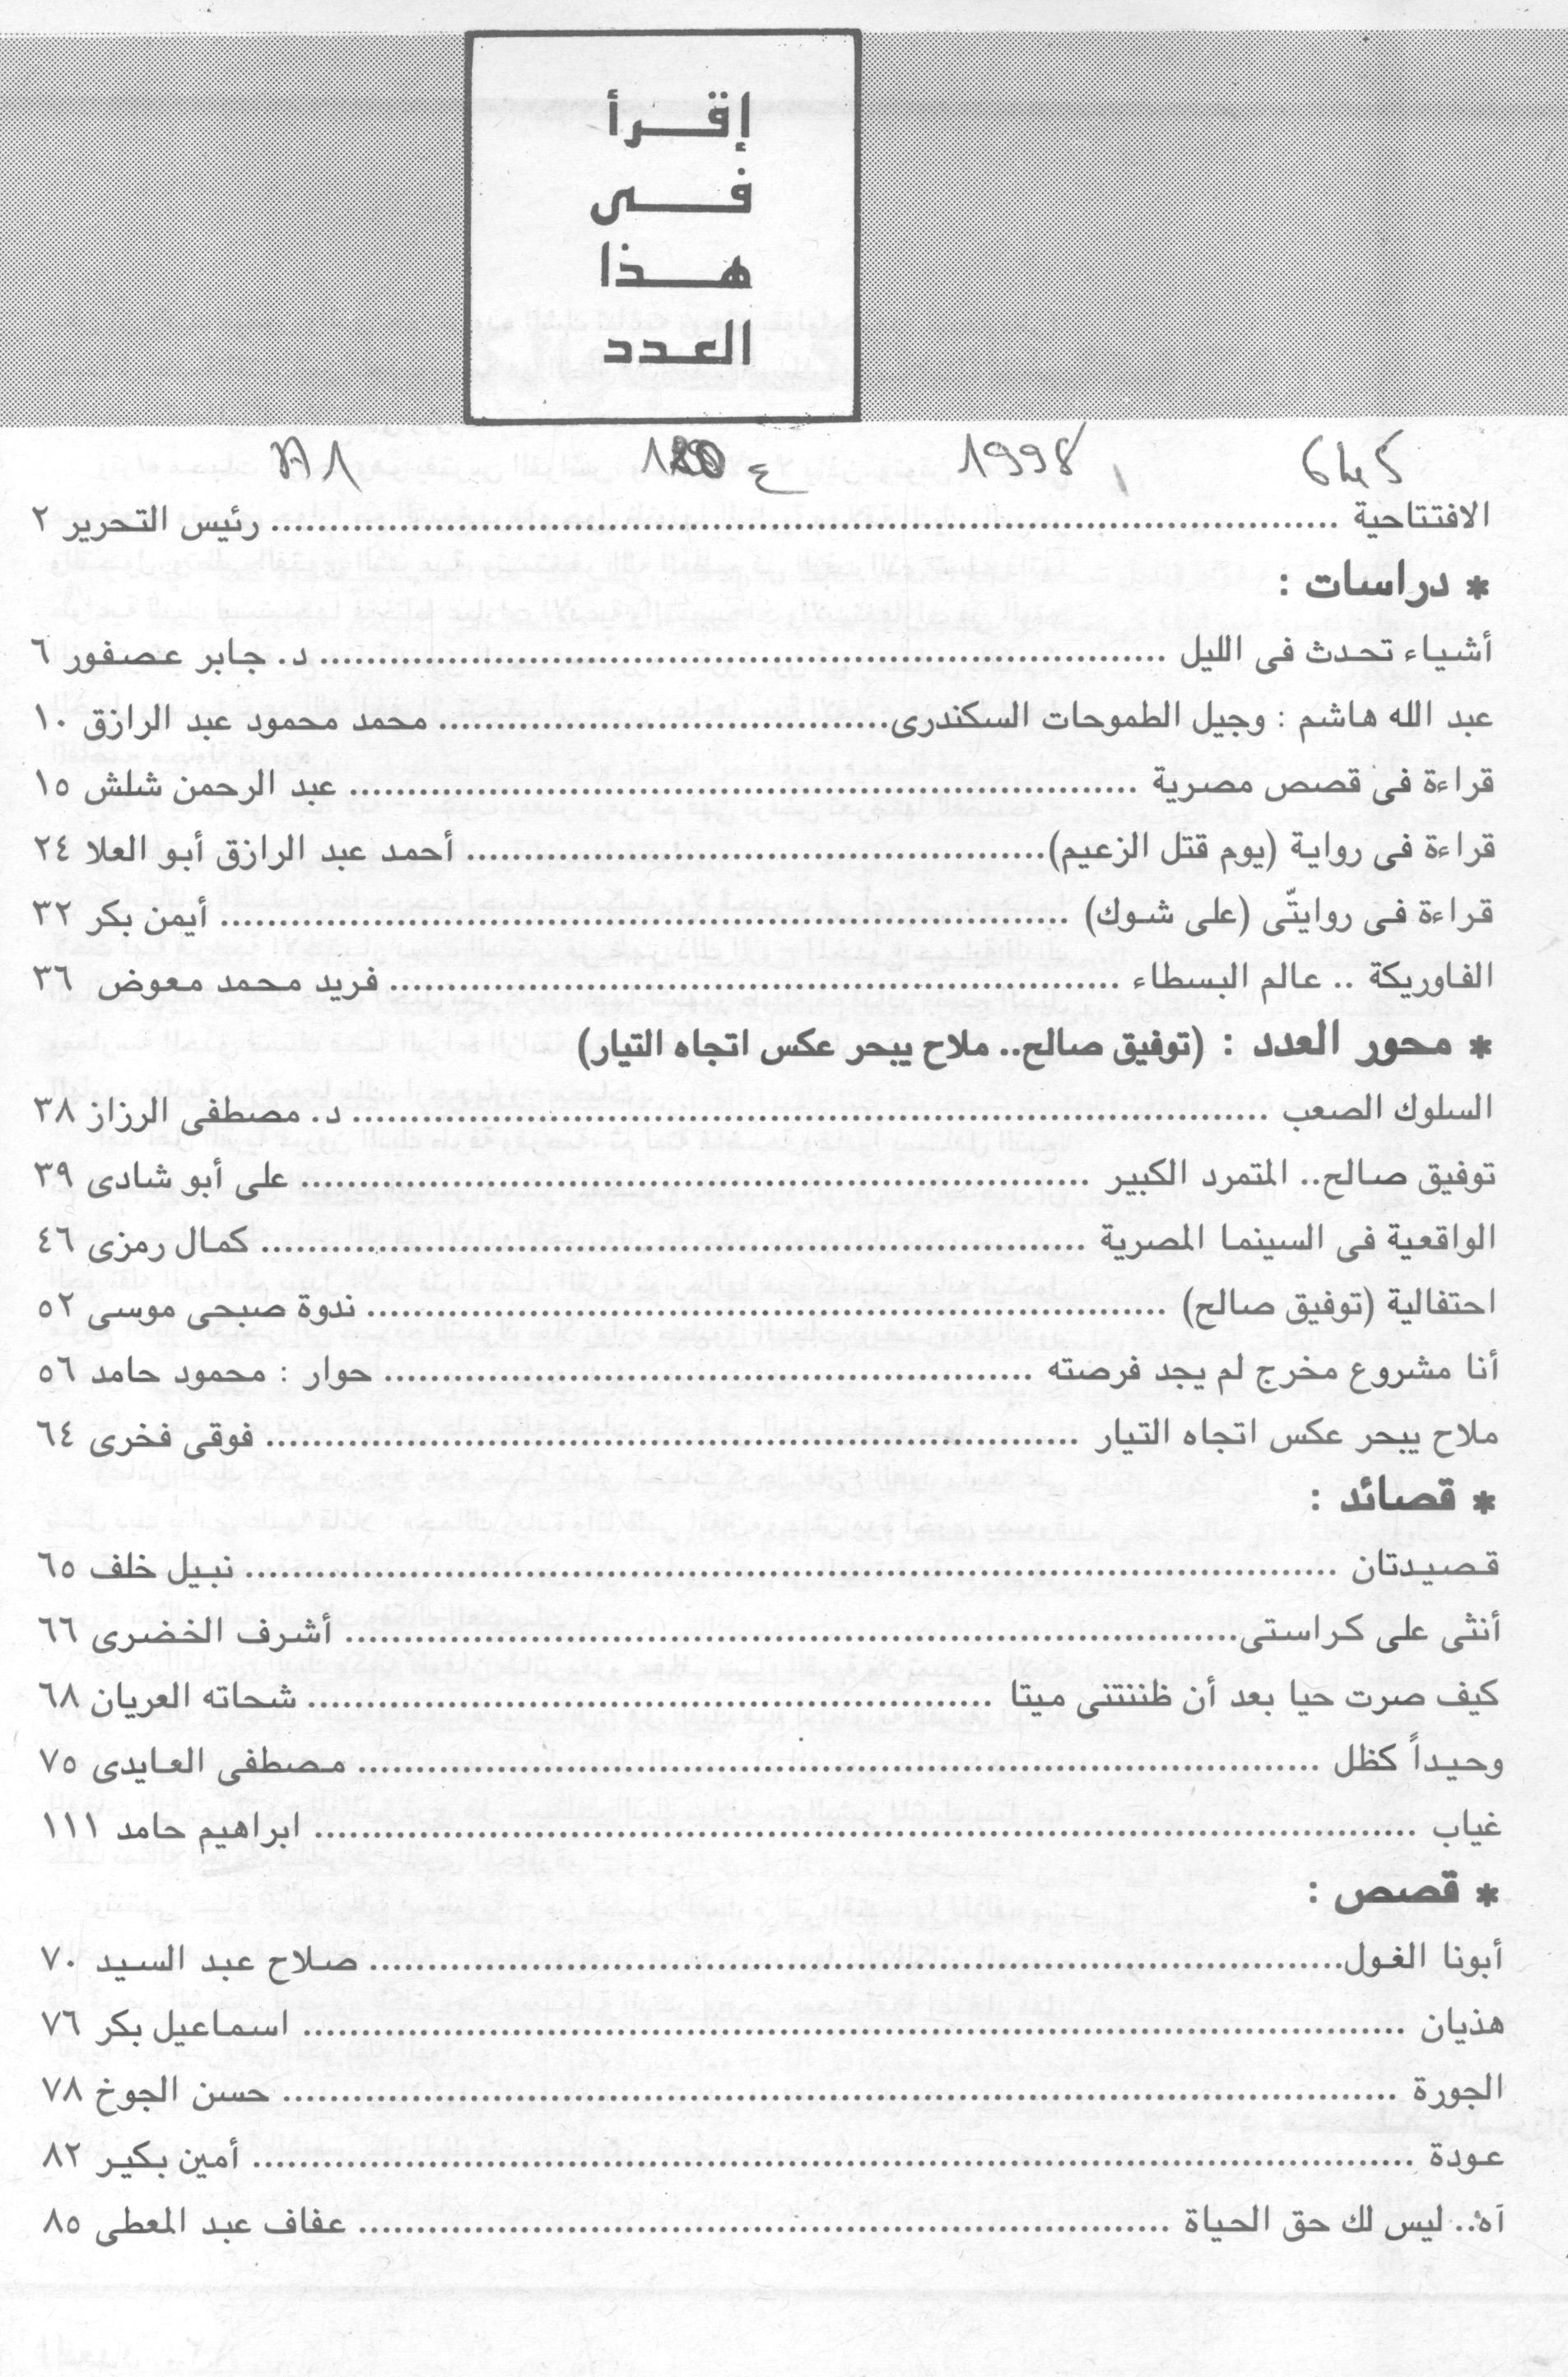 إقرأ
فى
هذا
العدد
1998
الافتتاحية ........ رئيس التحرير ٢
* دراسات :
أشياء تحدث فى الليل ........ د. جابر عصفور ٦
عبد الله هاشم : وجيل الطموحات السكندرى........ محمد محمود عبد الرازق ١٠
قراءة فى قصص مصرية ........ عبد الرحمن شلش ١٥
قراءة فى رواية (يوم قتل الزعيم)........ أحمد عبد الرازق أبو العلا ٢٤
قراءة فى روايتّى (على شوك) ........ أيمن بكر ٣٢
الفاوريكة .. عالم البسطاء ........ فريد محمد معوض ٣٦
* محور العدد : (توفيق صالح.. ملاح يبحر عكس اتجاه التيار)
السلوك الصعب ........ د. مصطفى الرزاز ٣٨
توفيق صالح.. المتمرد الكبير ........ على أبو شادى ٣٩
الواقعية فى السينما المصرية ........ كمال رمزى ٤٦
احتفالية (توفيق صالح) ........ ندوة صبحى موسى ٥٢
أنا مشروع مخرج لم يجد فرصته ........ حوار : محمود حامد ٥٦
ملاح يبحر عكس اتجاه التيار ........ فوقى فخرى ٦٤
* قصائد :
قصيدتان ........ نبيل خلف ٦٥
أنثى على كراستى........ أشرف الخضرى ٦٦
كيف صرت حيا بعد أن ظننتنى ميتا ........ شحاته العريان ٦٨
وحيداً كظل ........ مصطفى العايدى ٧٥
غياب ........ ابراهيم حامد ١١١
* قصص :
أبونا الغول........ صلاح عبد السيد ٧٠
هذيان ........ اسماعيل بكر ٧٦
الجورة ........ حسن الجوخ ٧٨
عودة ........ أمين بكير ٨٢
آه.. ليس لك حق الحياة ........ عفاف عبد المعطى ٨٥